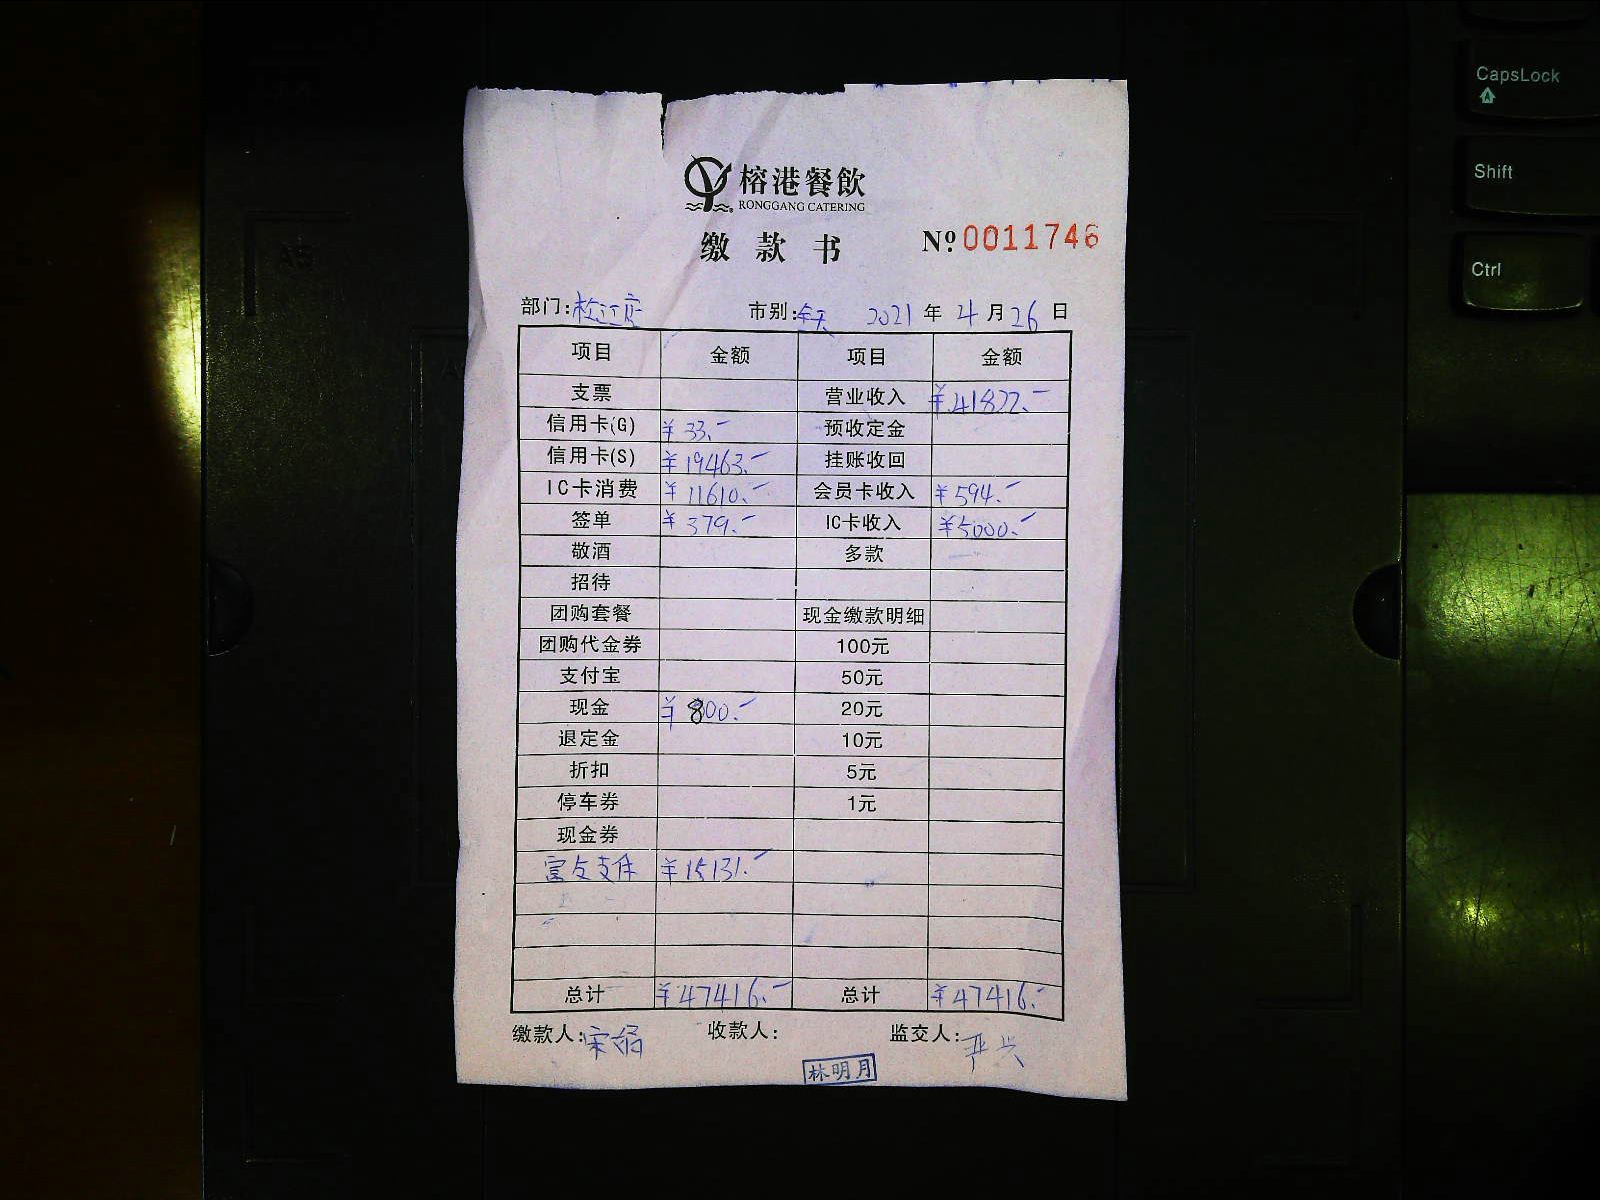 榕港餐飲
RONGGANG CATERING
缴款书 Nº 0011746
部门:松江店 市别:全天 2021年4月26日
项目 金额 项目 金额
支票 营业收入 ¥41822.-
信用卡(G) ¥33.- 预收定金
信用卡(S) ¥19463.- 挂账收回
IC卡消费 ¥11610.- 会员卡收入 ¥594.-
签单 ¥379.- IC卡收入 ¥5000.-
敬酒 多款
招待
团购套餐 现金缴款明细
团购代金券 100元
支付宝 50元
现金 ¥800.- 20元
退定金 10元
折扣 5元
停车券 1元
现金券
富友支付 ¥15131.-
总计 ¥47416.- 总计 ¥47416.-
缴款人: 收款人: 监交人:严兴
林明月
CapsLock
Shift
Ctrl